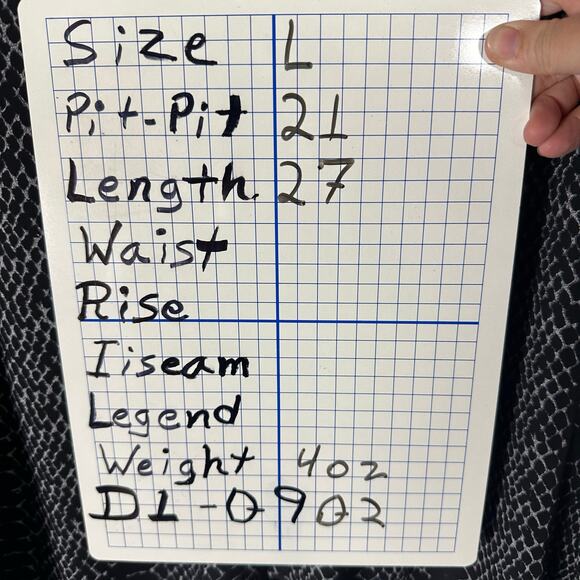 Size L
Pit-Pit 21
Length 27
Waist
Rise
Iiseam
Legend
Weight 4oz
D1-0902